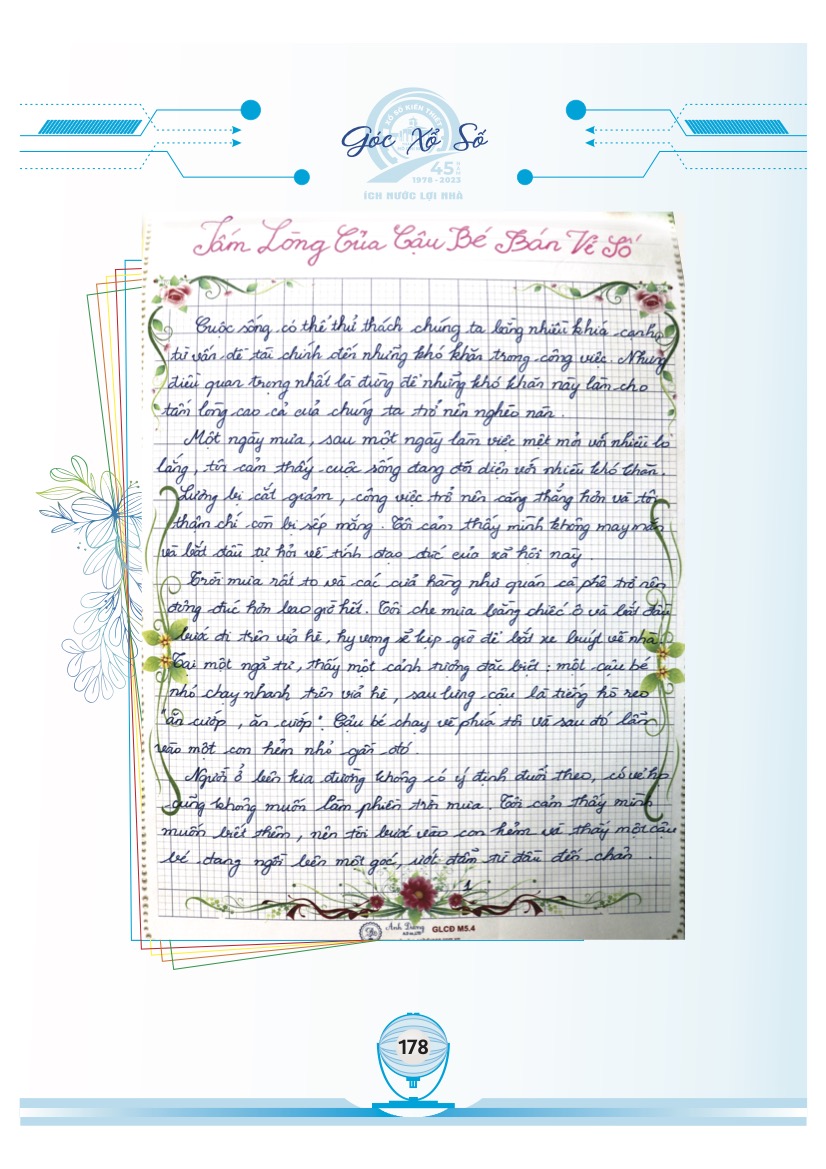 Góc Xổ Số
XỔ SỐ KIẾN THIẾT
45 NĂM
1978 - 2023
ÍCH NƯỚC LỢI NHÀ
Tấm Lòng Của Cậu Bé Bán Vé Số
Cuộc sống có thể thử thách chúng ta bằng nhiều khía cạnh,
từ vấn đề tài chính đến những khó khăn trong công việc. Nhưng
điều quan trọng nhất là đừng để những khó khăn này làm cho
tấm lòng cao cả của chúng ta trở nên nghèo nàn.
Một ngày mưa, sau một ngày làm việc mệt mỏi với nhiều lo
lắng, tôi cảm thấy cuộc sống đang đối diện với nhiều khó khăn.
Lương bị cắt giảm, công việc trở nên căng thẳng hơn và tôi
thậm chí còn bị sếp mắng. Tôi cảm thấy mình không may mắn
và bắt đầu tự hỏi về tính đạo đức của xã hội này.
Trời mưa rất to và các cửa hàng như quán cà phê trở nên
đông đúc hơn bao giờ hết. Tôi che mưa bằng chiếc ô và bắt đầu
bước đi trên vỉa hè, hy vọng sẽ kịp giờ để bắt xe buýt về nhà.
Tại một ngã tư, thấy một cảnh tượng đặc biệt: một cậu bé
nhỏ chạy nhanh trên vỉa hè, sau lưng cậu là tiếng hò reo
"ăn cướp, ăn cướp". Cậu bé chạy về phía tôi và sau đó lẩn
vào một con hẻm nhỏ gần đó.
Người ở bên kia đường không có ý định đuổi theo, có vẻ họ
cũng không muốn làm phiền trời mưa. Tôi cảm thấy mình
muốn biết thêm, nên tôi bước vào con hẻm và thấy một cậu
bé đang ngồi bên một góc, ướt đẫm từ đầu đến chân.
1
Anh Dũng
GLCD M5.4
178